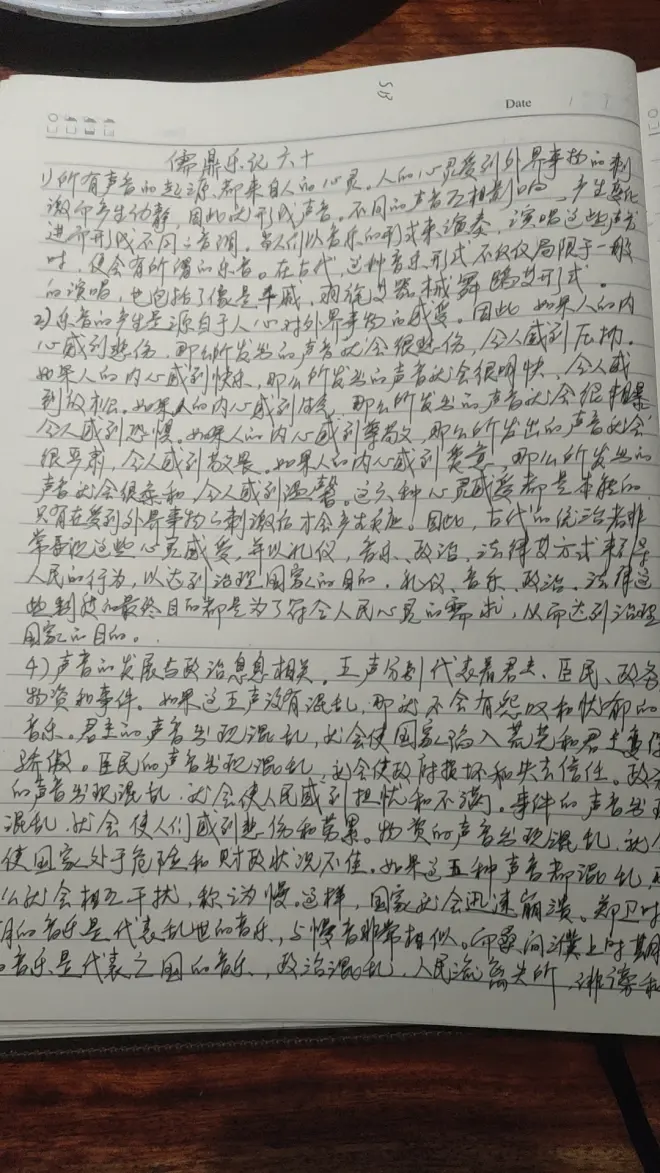 58
Date
儒鼎乐记六十
1)所有声音的起源,都来自人的心灵。人的心灵受到外界事物的刺
激而产生动静,因此而形成声音。不同的声音互相影响,产生变化
进而形成不同的音调。当人们以音乐的形式来演奏、演唱这些声音
时,便会有所谓的乐音。在古代,这种音乐形式不仅仅局限于一般
的演唱,也包括了像是干戚,羽旄器械舞蹈形式。
2)乐音的产生是源自于人心对外界事物的感受。因此,如果人的内
心感到悲伤,那么所发出的声音就会很悲伤,令人感到压抑。
如果人的内心感到快乐,那么所发出的声音就会很明快,令人感
到放松。如果人的内心感到,那么所发出的声音就会很粗暴
令人感到恐惧。如果人的内心感到尊敬,那么所发出的声音就会
很严肃,令人感到敬畏。如果人的内心感到爱意,那么所发出的
声音就会很柔和,令人感到温馨。这六种心灵感受都是本能的,
只有在受到外界事物的刺激后才会产生反应。因此,古代的统治者非
常重视这些心灵感受,并以礼仪,音乐、政治、法律方式来引导
人民的行为,以达到治理国家的目的。礼仪、音乐、政治、法律这
些制度的最终目的都是为了符合人民心灵的需求,从而达到治理
国家的目的。
4)声音的发展与政治息息相关。五声分别代表着君主、臣民、政务
物资和事件。如果这五声没有混乱,那就不会有怨叹和忧郁的
音乐。君主的声音出现混乱,就会使国家陷入荒芜和君主变得
骄傲。臣民的声音出现混乱,就会使政府损坏和失去信任。政务
的声音出现混乱,就会使人民感到担忧和不满。事件的声音出现
混乱,就会使人们感到悲伤和劳累。物资的声音出现混乱,就会
使国家处于危险和财政状况不佳。如果这五种声音都混乱,
么就会相互干扰,称之为慢。这样,国家就会迅速崩溃。郑卫时
期的音乐是代表乱世的音乐,与慢音非常相似。桑间濮上时期
的音乐是代表亡国的音乐,政治混乱,人民流离失所,诽谤和